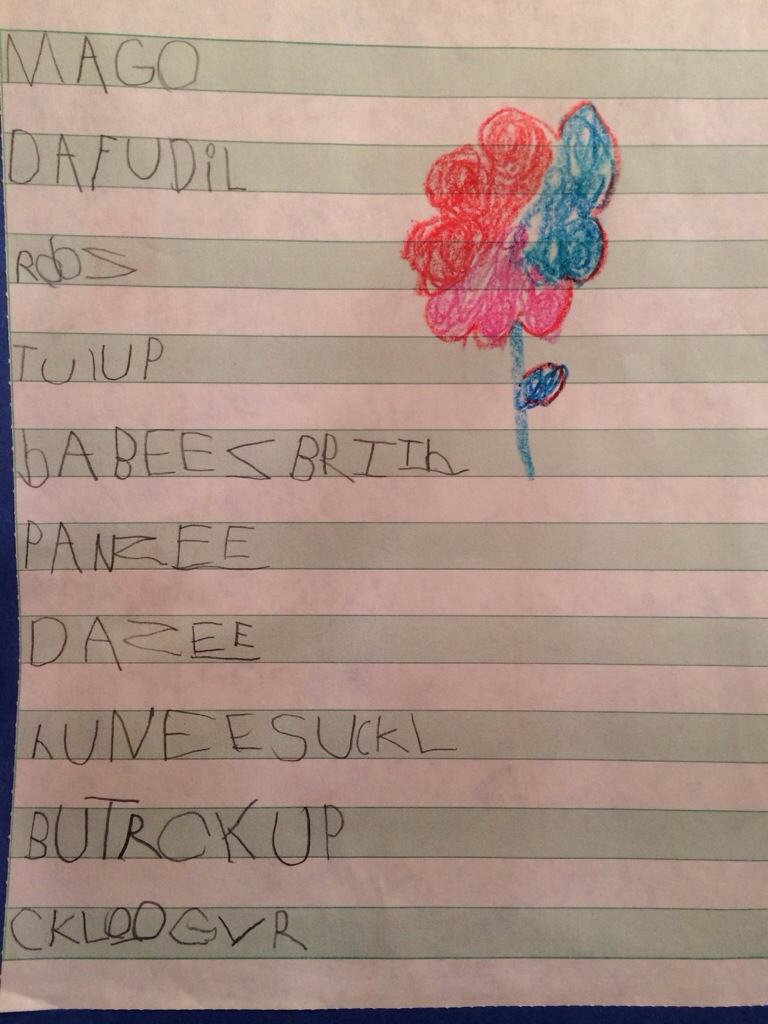 MAGO
DAFUDiL
ROOS
TULUP
bABEES BRITh
PANZEE
DAZEE
hUNEESUCKL
BUTRCKUP
CKLOOGVR